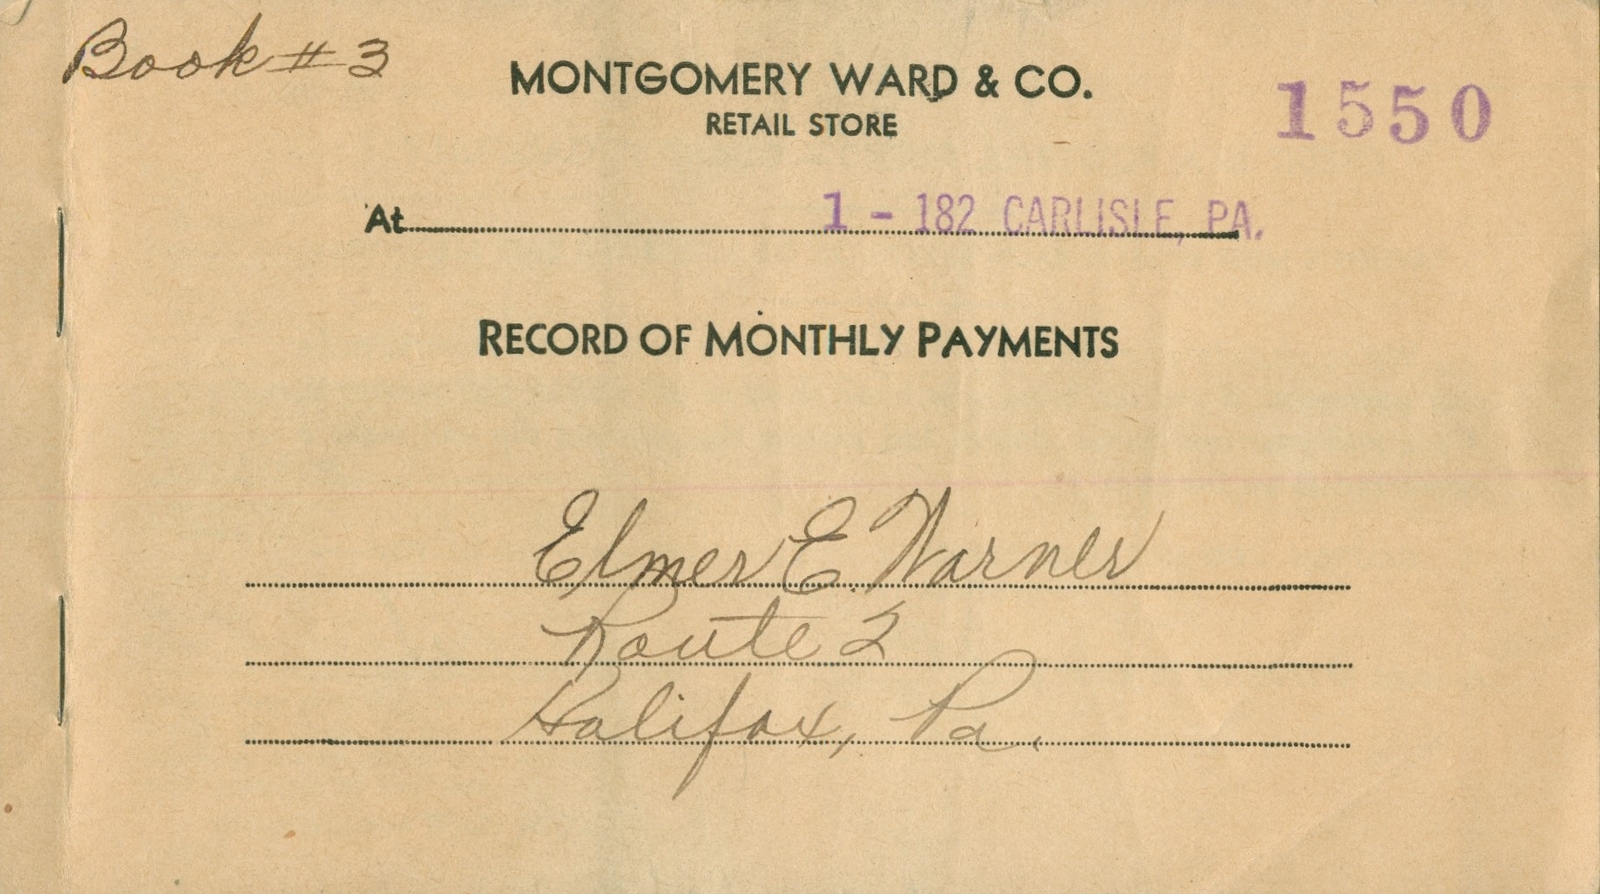 Book #3
MONTGOMERY WARD & CO.
RETAIL STORE
1550
At 1 - 182 CARLISLE, PA.
RECORD OF MONTHLY PAYMENTS
Elmer E. Warner
Route 2
Halifax, Pa.